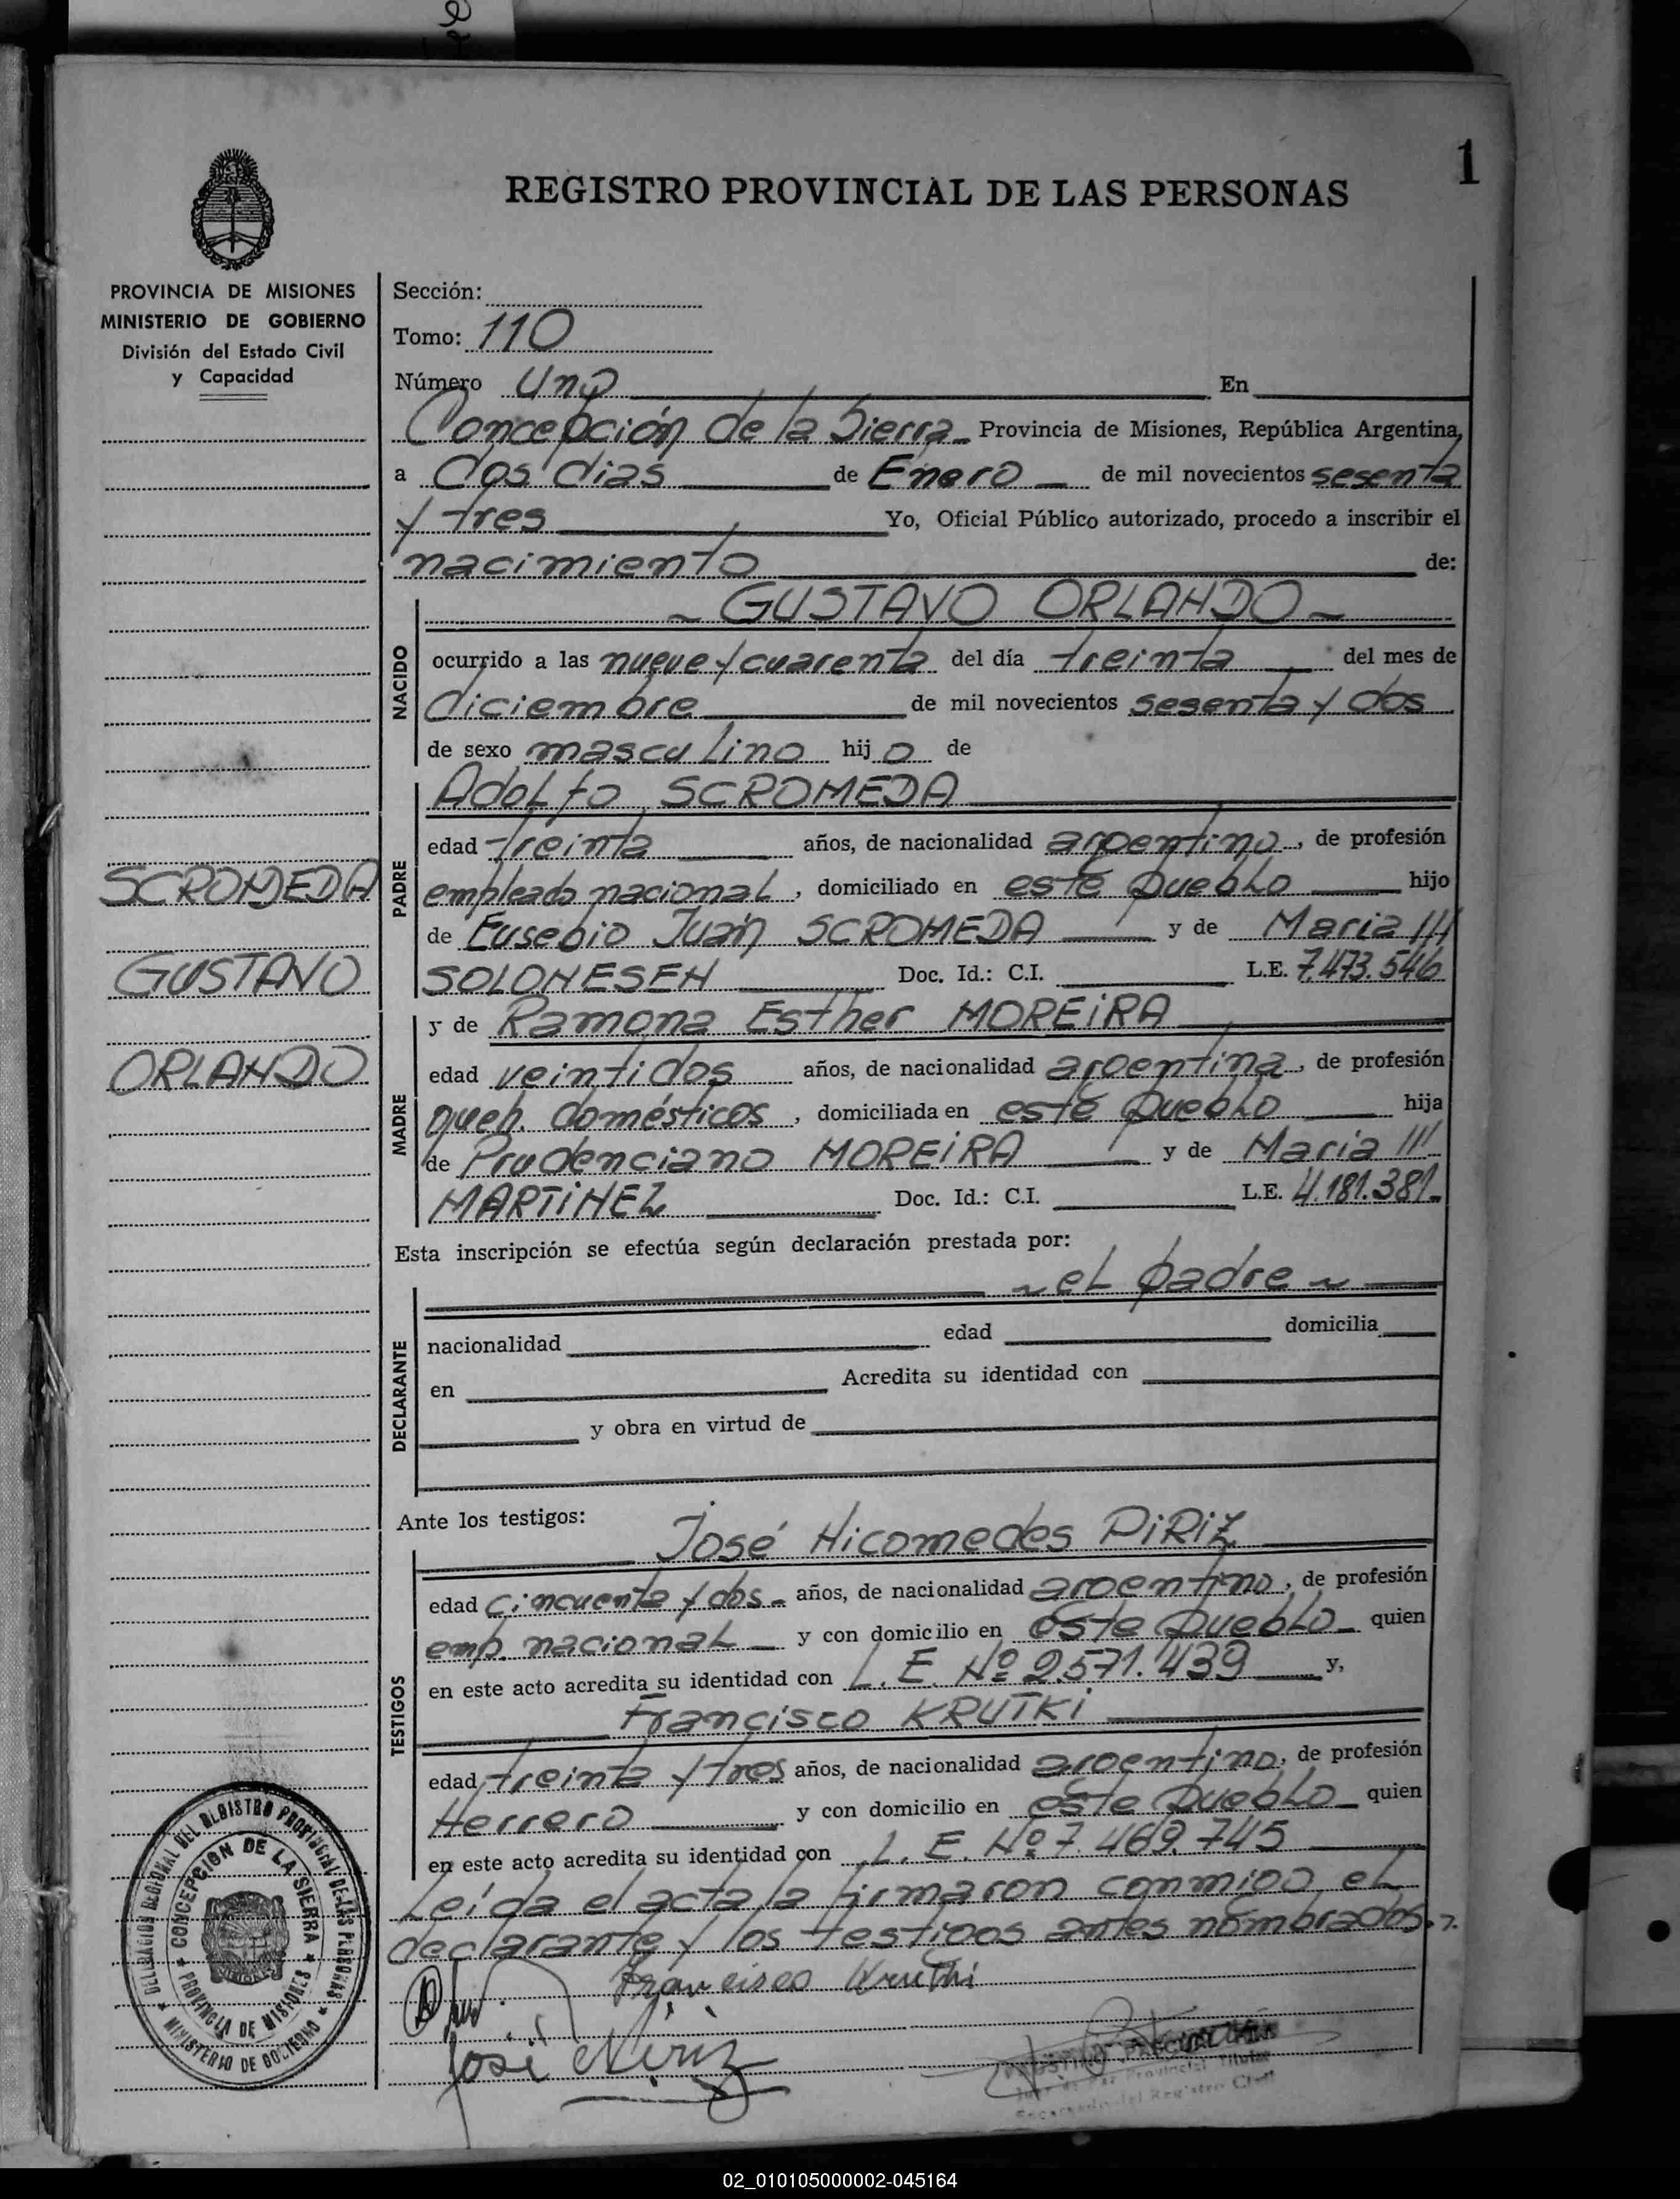 1
REGISTRO PROVINCIAL DE LAS PERSONAS
PROVINCIA DE MISIONES
MINISTERIO DE GOBIERNO
División del Estado Civil
y Capacidad
SCROMEDA
GUSTAVO
ORLANDO
Sección:
Tomo: 110
Número Uno En
Concepción de la Sierra Provincia de Misiones, República Argentina,
a dos dias de Enero de mil novecientos sesenta
y tres Yo, Oficial Público autorizado, procedo a inscribir el
nacimiento de:
NACIDO
~ GUSTAVO ORLANDO ~
ocurrido a las nueve y cuarenta del día treinta del mes de
diciembre de mil novecientos sesenta y dos
de sexo masculino hijo de
PADRE
Adolfo SCROMEDA
edad treinta años, de nacionalidad argentino, de profesión
empleado nacional, domiciliado en este pueblo hijo
de Eusebio Juan SCROMEDA y de Maria ///
SOLONESEN Doc. Id.: C.I. L.E. 7.473.546
MADRE
y de Ramona Esther MOREiRA
edad veintidos años, de nacionalidad argentina, de profesión
queh. domésticos, domiciliada en este pueblo hija
de Prudenciano MOREiRA y de Maria ///
MARTiNEZ Doc. Id.: C.I. L.E. 4.181.381-
Esta inscripción se efectúa según declaración prestada por:
DECLARANTE
~ el padre ~
nacionalidad edad domicilia
en Acredita su identidad con
y obra en virtud de
Ante los testigos:
TESTIGOS
José Nicomedes PiRiZ
edad cincuenta y dos - años, de nacionalidad argentino, de profesión
emp. nacional y con domicilio en este pueblo quien
en este acto acredita su identidad con L. E. Nº 2.571.439 y,
Francisco KRUTKi
edad treinta y tres años, de nacionalidad argentino, de profesión
Herrero y con domicilio en este pueblo quien
en este acto acredita su identidad con L. E. Nº 7.469.745
Leída el acta, la firmaron conmigo el
declarante y los testigos antes nombrados.
Francisco Krutki
José N Piriz
DELEGACION REGIONAL DEL REGISTRO PROVINCIAL DE LAS PERSONAS
MINISTERIO DE GOBIERNO
CONCEPCION DE LA SIERRA
PROVINCIA DE MISIONES
Registro Civil
02_010105000002-045164